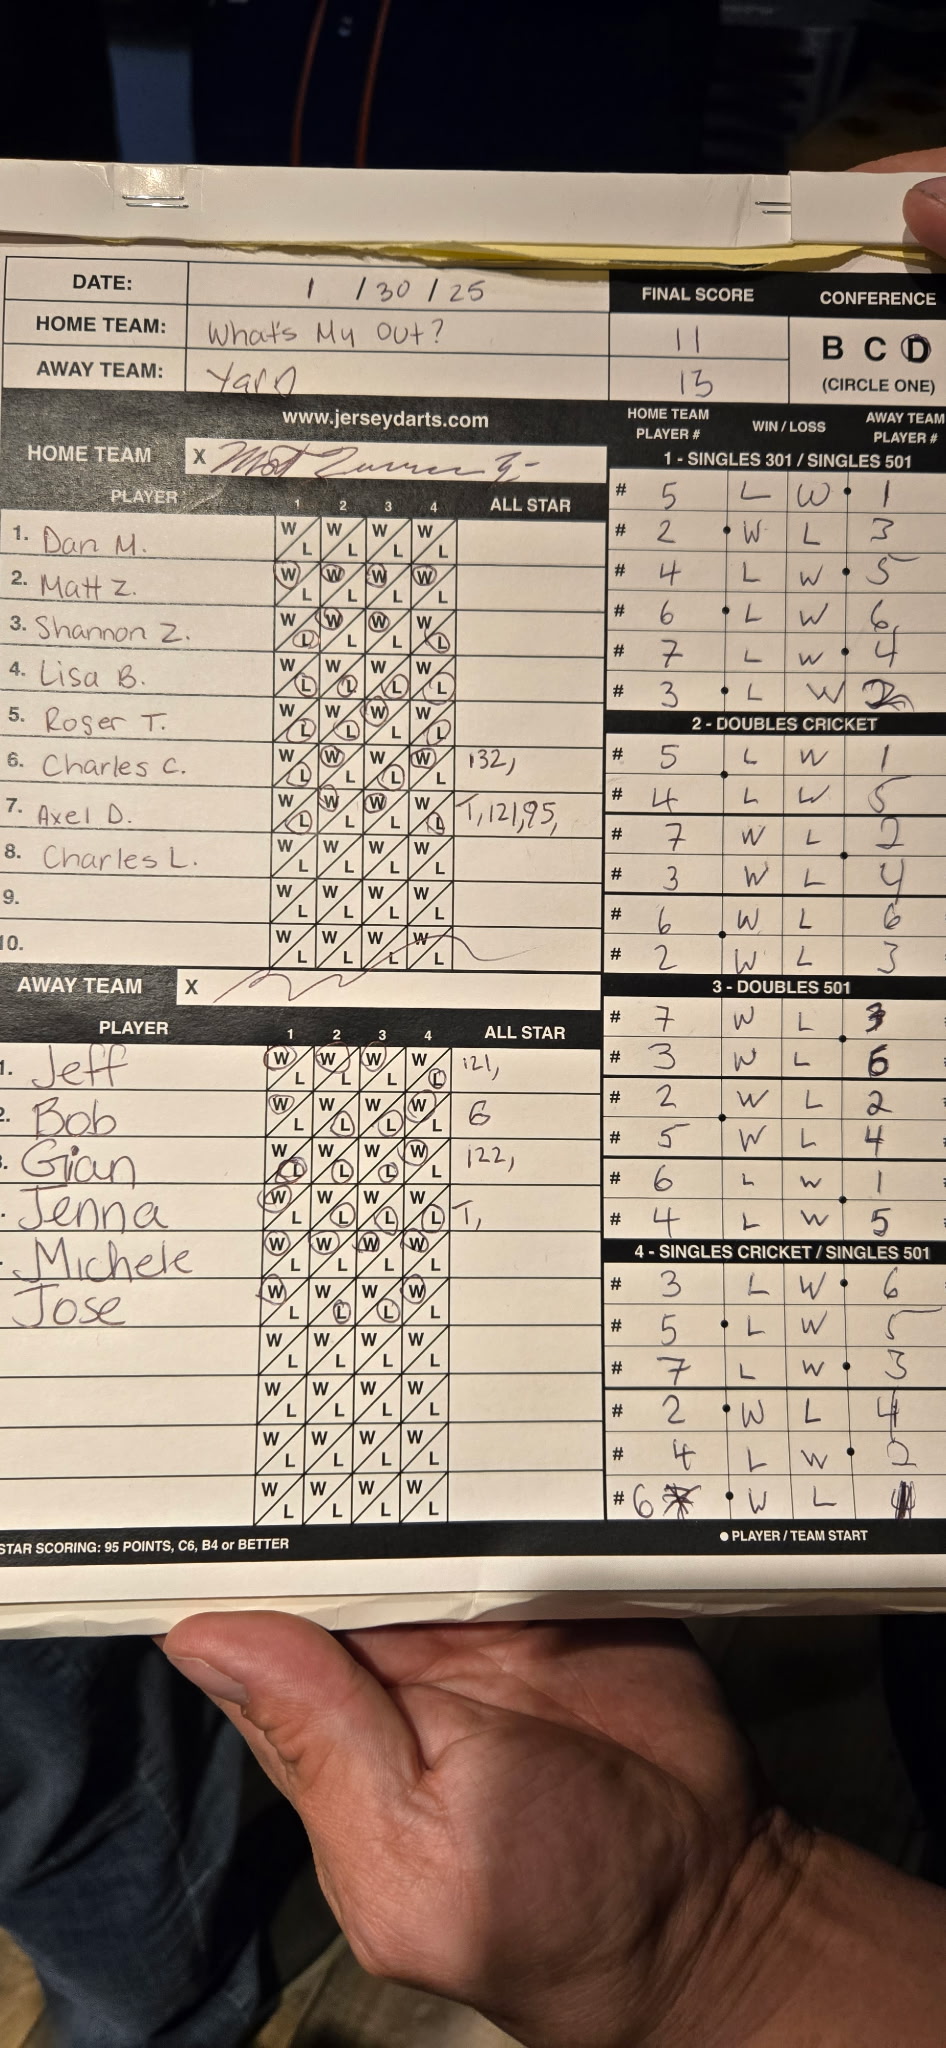 DATE: 1 / 30 / 25
HOME TEAM: What's My Out?
AWAY TEAM: Yard
FINAL SCORE
11
13
CONFERENCE
B C D
(CIRCLE ONE)
www.jerseydarts.com
HOME TEAM X
PLAYER 1 2 3 4 ALL STAR
1. Dan M. W L W L W L W L
2. Matt Z. W L W L W L W L
3. Shannon Z. W L W L W L W L
4. Lisa B. W L W L W L W L
5. Roger T. W L W L W L W L
6. Charles C. W L W L W L W L 132,
7. Axel D. W L W L W L W L T,121,95,
8. Charles L. W L W L W L W L
9. W L W L W L W L
10. W L W L W L W L
AWAY TEAM X
PLAYER 1 2 3 4 ALL STAR
1. Jeff W L W L W L W L 121,
2. Bob W L W L W L W L 6
3. Gian W L W L W L W L 122,
Jenna W L W L W L W L T,
Michele W L W L W L W L
Jose W L W L W L W L
W L W L W L W L
W L W L W L W L
W L W L W L W L
W L W L W L W L
STAR SCORING: 95 POINTS, C6, B4 or BETTER
HOME TEAM PLAYER # WIN / LOSS AWAY TEAM PLAYER #
1 - SINGLES 301 / SINGLES 501
# 5 L W 1
# 2 W L 3
# 4 L W 5
# 6 L W 6
# 7 L W 4
# 3 L W 2
2 - DOUBLES CRICKET
# 5 L W 1
# 4 L W 5
# 7 W L 2
# 3 W L 4
# 6 W L 6
# 2 W L 3
3 - DOUBLES 501
# 7 W L 3
# 3 W L 6
# 2 W L 2
# 5 W L 4
# 6 L W 1
# 4 L W 5
4 - SINGLES CRICKET / SINGLES 501
# 3 L W 6
# 5 L W 5
# 7 L W 3
# 2 W L 4
# 4 L W 2
# 6 W L
PLAYER / TEAM START